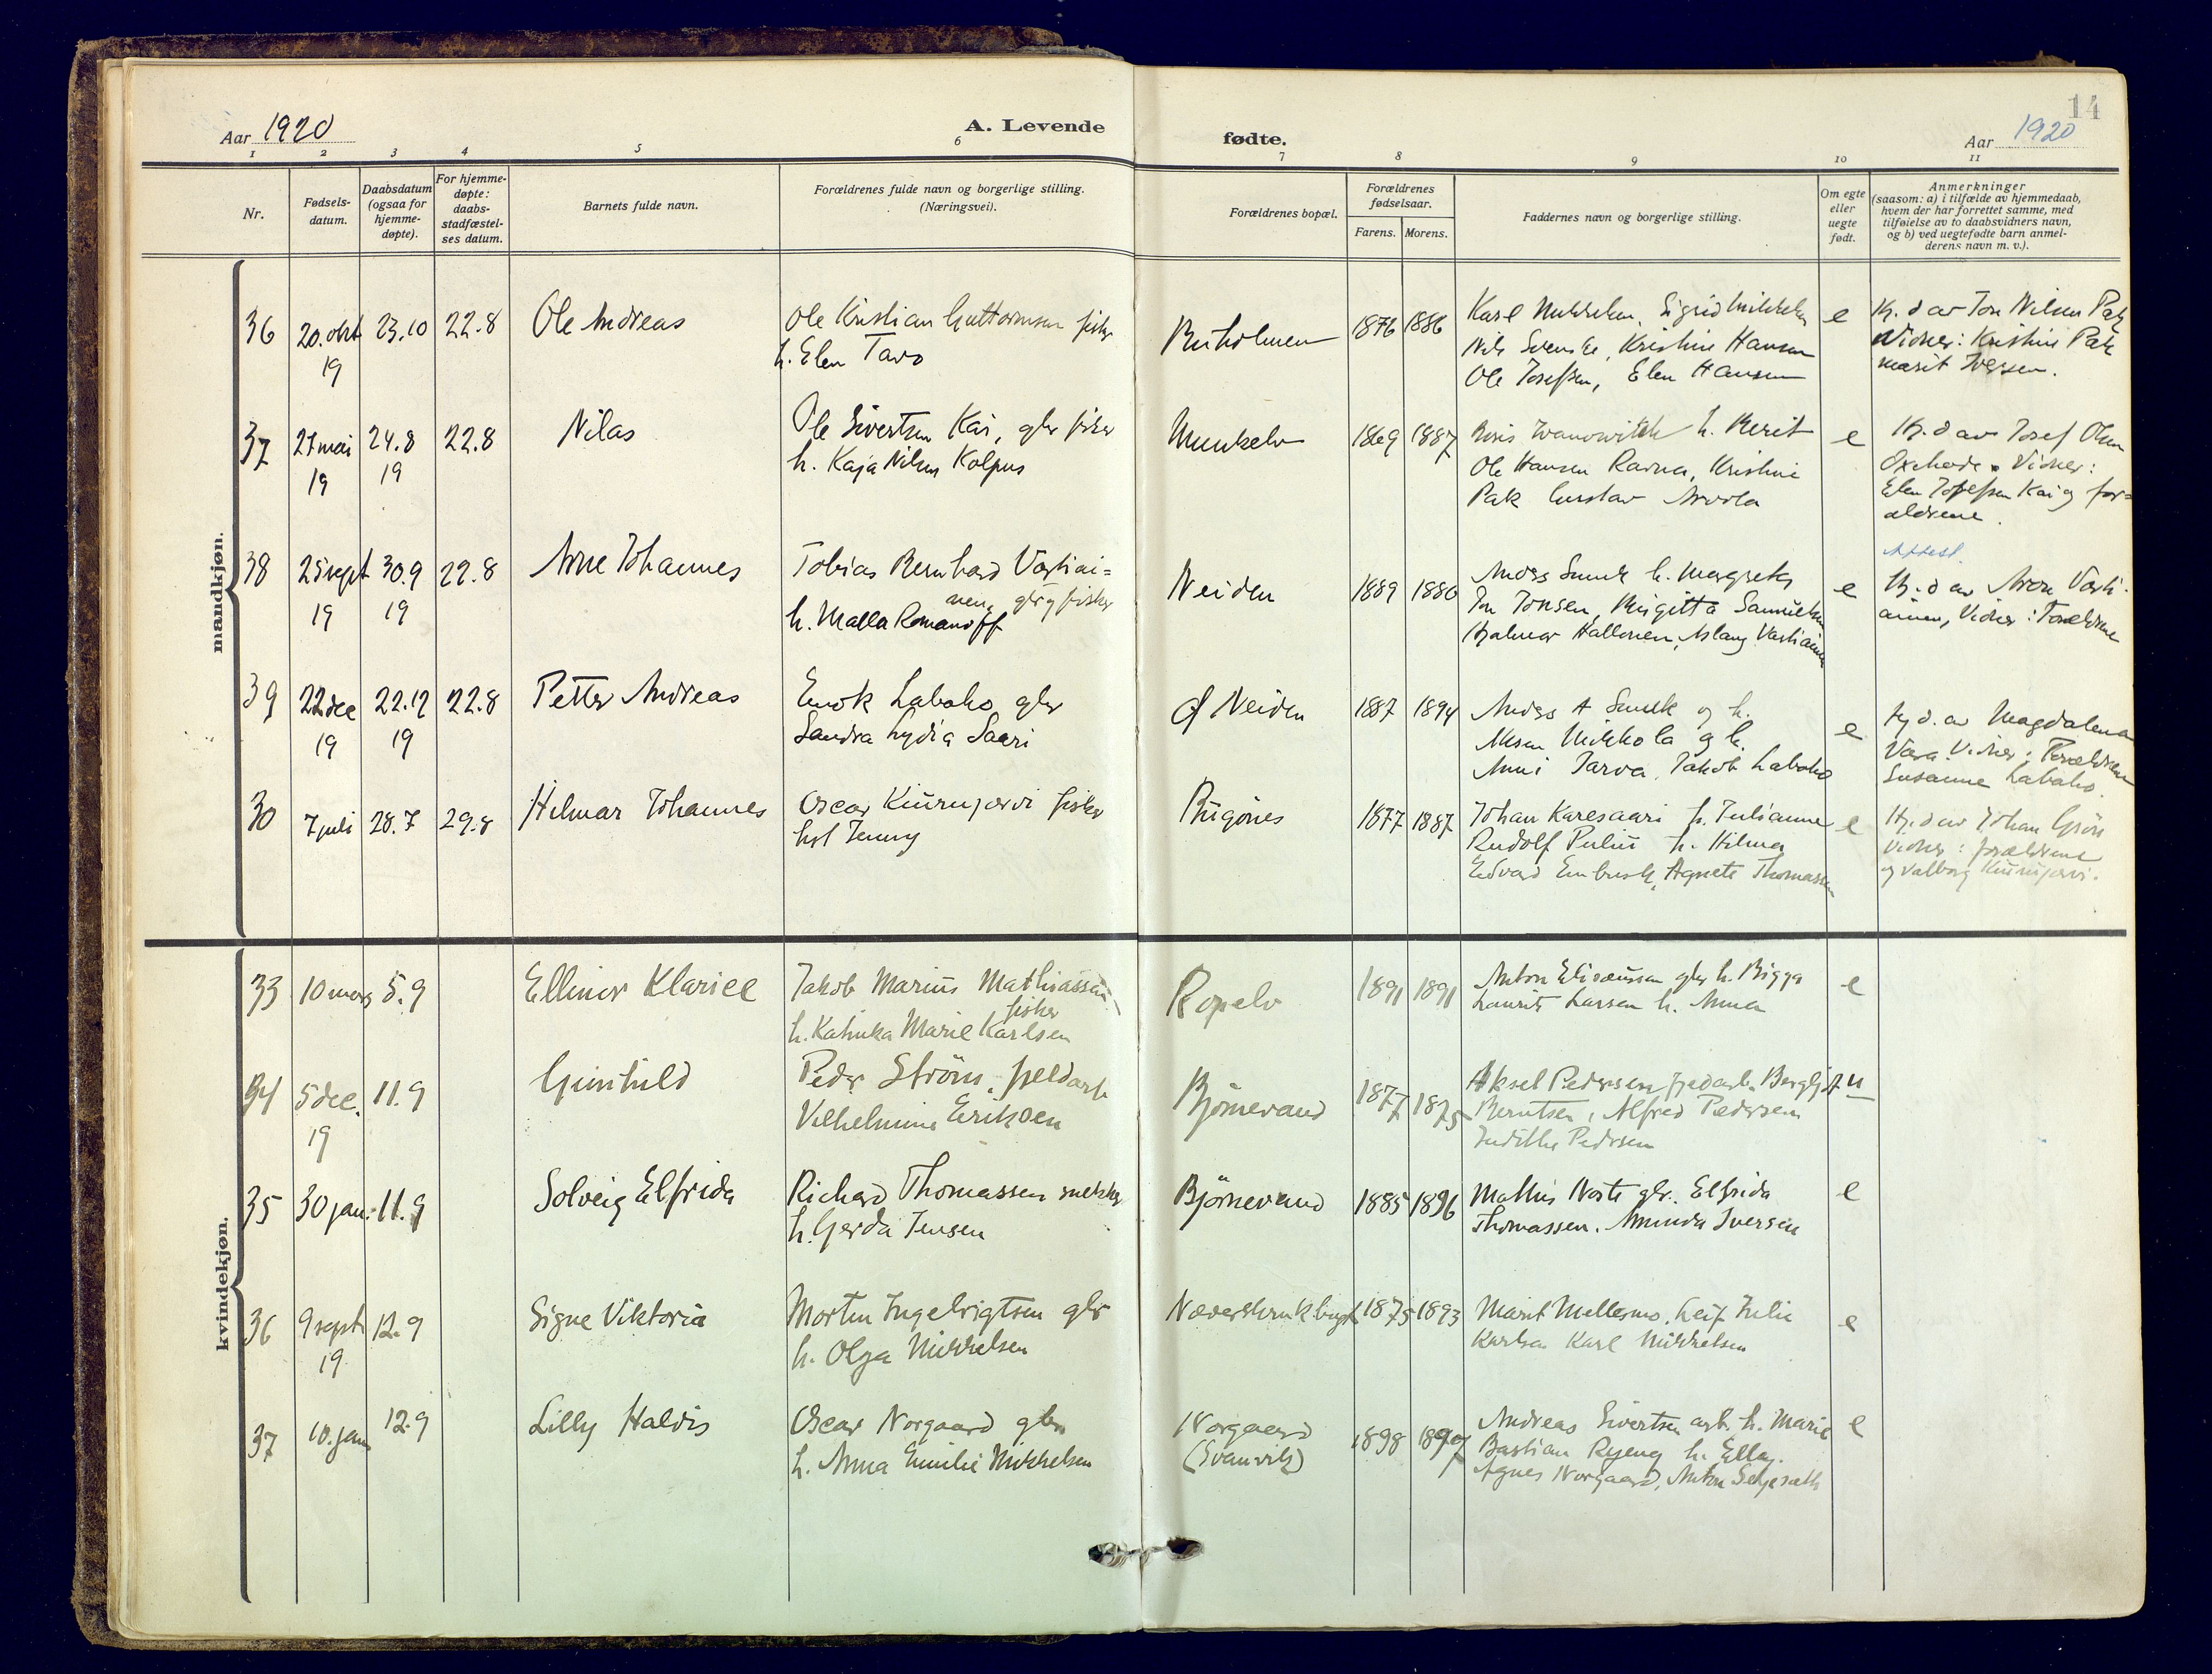 14
Aar 1920
A. Levende
fødte.
Aar 1920
1 2 3 4 5 6 7 8 9 10 11
Nr.
Fødsels-
datum.
Daabsdatum
(ogsaa for
hjemme-
døpte).
For hjemme-
døpte:
daabs-
stadfæstel-
ses datum.
Barnets fulde navn.
Forældrenes fulde navn og borgerlige stilling.
(Næringsvei).
Forældrenes bopæl.
Forældrenes
fødselsaar.
Farens. Morens.
Faddernes navn og borgerlige stilling.
Om egte
eller
uegte
født.
Anmerkninger
(saasom: a) i tilfælde av hjemmedaab,
hvem der har forrettet samme, med
tilføielse av to daabsvidners navn,
og b) ved uegtefødte barn anmel-
derens navn m. v.).
mandkjøn.
36 20. okt 23.10 22.8 Ole Andreas
19
Ole Kristian Guttormsen fisker
h. Elen Tavo
Buholmen 1876 1886
Karl Mikkelsen, Sigrid Mikkelsen
Nils Svenske, Kristine Hansen
Ole Josefsen, Elen Hansen
e
Hj. d av Jon Nilsen Pak
Vidner: Kristine Pak
Marit Iversen.
37 27 mai 24.8 22.8 Nilas
19 19
Ole Sivertsen Kai, gbr fisker
h. Kaja Nilsen Kolpus
Munkelv 1869 1887
Boris Ivanowitch h. Berit
Ole Hansen Ravna, Kristine
Pak Gustav Arvola
e
Hj. d av Josef Olsen
Vidner:
Elen Josefsen Kai og for=
ældrene.
38 25 sept 30.9 22.8 Arne Johannes
19 19
Tobias Bernhard Vartiai=
nen, gbr og fisker
h. Malla Romanoff
Neiden 1889 1880
Anders Smuk h. Margrete
Jon Jonsen, Birgitta Samuelsen
Hjalmar Hallonen, Aslaug Vartiainen
e
Attest
Hj. d av Aron Varti-
ainen, Vidner: Forældrene
39 22 dec 22.12 22.8 Petter Andreas
19 19
Enok Labaho gbr
Sandra Lydia Saari
Ø Neiden 1887 1894
Anders A Smuk og h.
Mikkola og h.
Anni Jarva, Jakob Labaho
e
Hj d. av Magdalena
Vara Vidner: Forældrene
Susanne Labaho.
30 7 juli 28.7 29.8 Hilmar Johannes
Oscar Kiurujærvi fisker
hst Jenny
Bugönes 1877 1887
Johan Karesaari h. Julianne
Rudolf Pulju h. Hilma
Edvard Embusk, Agnete Thomassen
e
Hj. d av Johan Grön
Vidner: forældrene
og Valborg Kiurujærvi.
kvindekjøn.
33 10 mars 5.9 Ellinor Klarice
Jakob Marius Mathiassen
fisker
h. Katinka Marie Karlsen
Ropelv 1891 1891
Anton Eliseussen gbr h. Bigga
Laurits Larsen h. Anna
e
34 5 dec. 11.9 Gunhild
19
Peder Ström, fjeldarb
Vilhelmine Eriksen
Björnevand 1877 1875
Aksel Pedersen fjeldarb. Bergljot
Berntsen, Alfred Pedersen
Judithe Pedersen
u
35 30 jan. 11.9 Solveig Elfrida
Richard Thomassen snekker
h. Gerda Jensen
Björnevand 1885 1896
Mathis Norti gbr. Elfrida
Thomassen. Amunda Iversen
e
36 9 sept 12.9 Signe Viktoria
19
Morten Ingebrigtsen gbr
h. Olga Mikkelsen
Næverskrukbugt 1875 1893
Marit Mellesmo, Leif Julie
Karlsen Karl Mikkelsen
e
37 10. jan 12.9 Lilly Haldis
Oscar Norgaard gbr
h. Anna Emilie Mikkelsen
Norgaard
(Svanvik)
1898 1897
Andreas Sivertsen arb. h. Marie
Bastian Ryeng h. Ella,
Agnes Norgaard, Anton Seljesæth
e